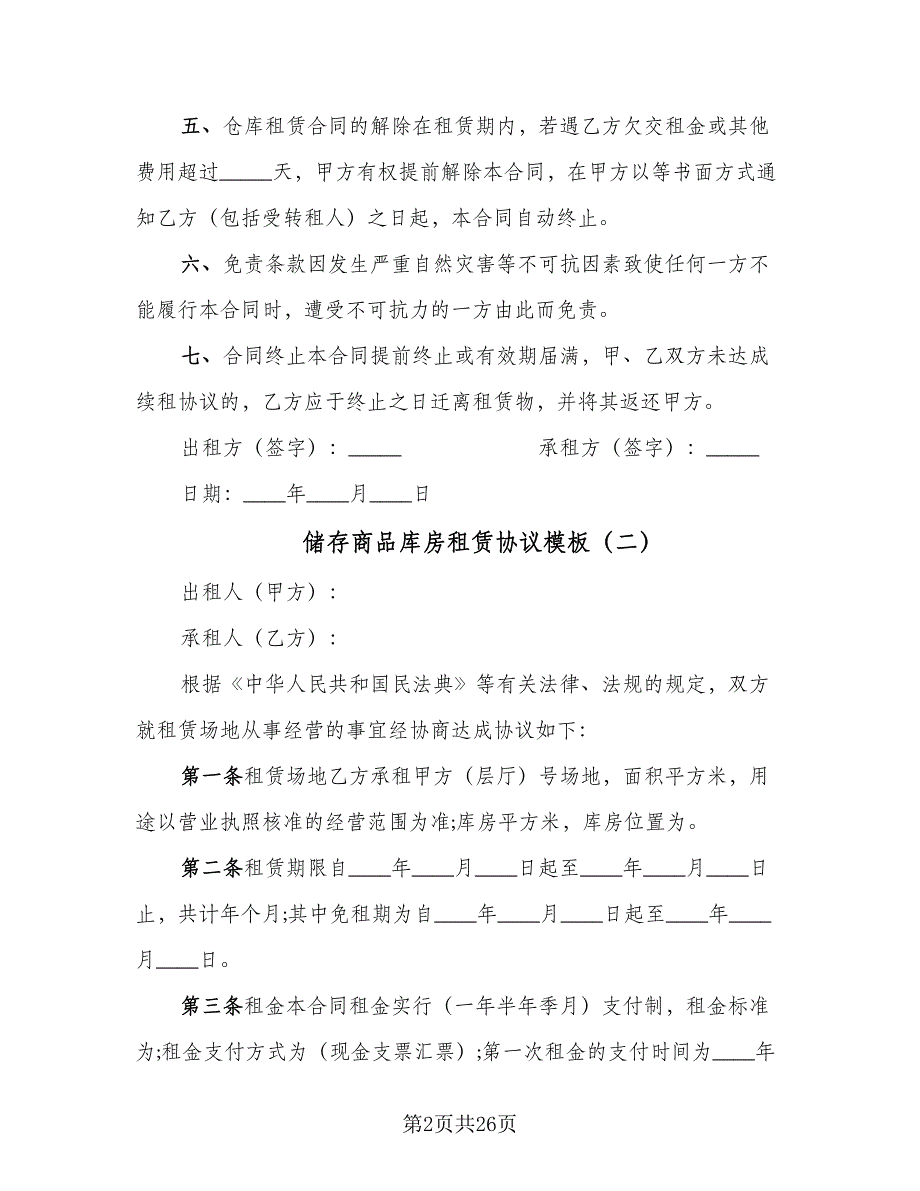 五、仓库租赁合同的解除在租赁期内，若遇乙方欠交租金或其他
费用超过_____天，甲方有权提前解除本合同，在甲方以等书面方式通
知乙方（包括受转租人）之日起，本合同自动终止。
六、免责条款因发生严重自然灾害等不可抗因素致使任何一方不
能履行本合同时，遭受不可抗力的一方由此而免责。
七、合同终止本合同提前终止或有效期届满，甲、乙双方未达成
续租协议的，乙方应于终止之日迁离租赁物，并将其返还甲方。
出租方（签字）：_____ 承租方（签字）：_____
日期：____年____月____日
储存商品库房租赁协议模板（二）
出租人（甲方）：
承租人（乙方）：
根据《中华人民共和国民法典》等有关法律、法规的规定，双方
就租赁场地从事经营的事宜经协商达成协议如下：
第一条租赁场地乙方承租甲方（层厅）号场地，面积平方米，用
途以营业执照核准的经营范围为准;库房平方米，库房位置为。
第二条租赁期限自____年____月____日起至____年____月____日
止，共计年个月;其中免租期为自____年____月____日起至____年____
月____日。
第三条租金本合同租金实行（一年半年季月）支付制，租金标准
为;租金支付方式为（现金支票汇票）;第一次租金的支付时间为____年
第2页共26页